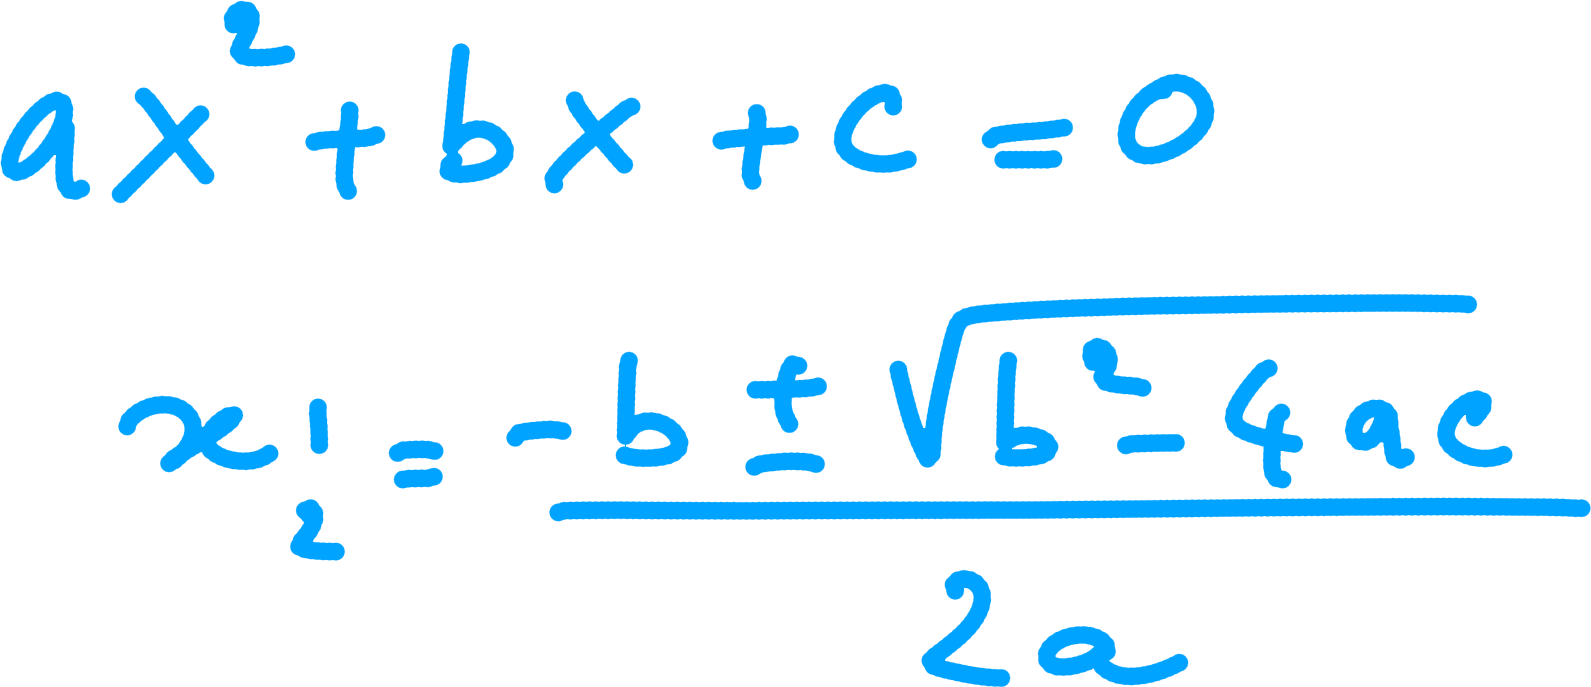 ax² + bx + c = 0
x₁,₂ = (-b ± √(b² - 4ac)) / 2a